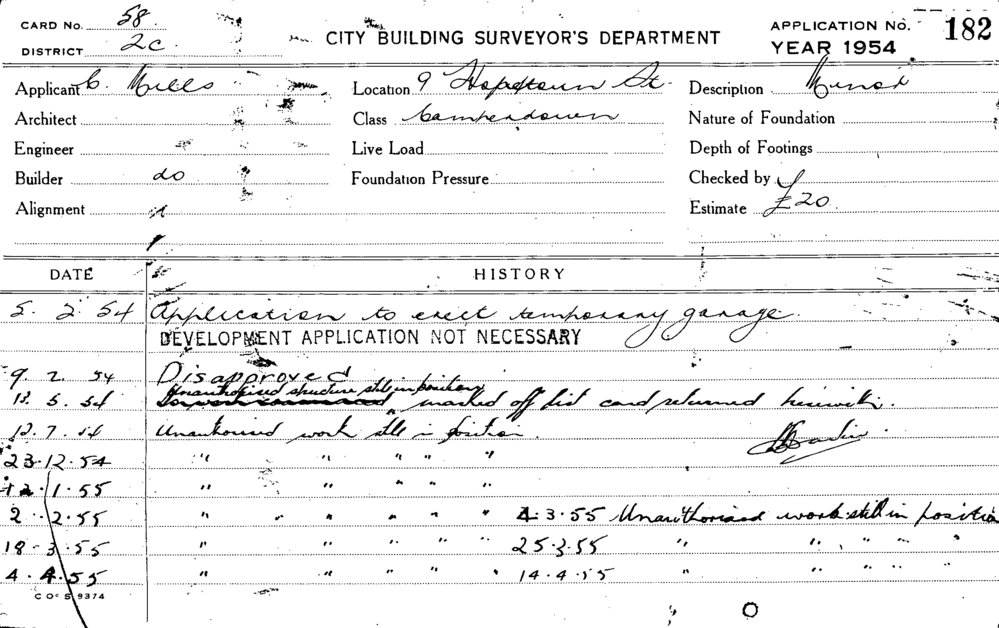 CARD No. 58
DISTRICT 2C
CITY BUILDING SURVEYOR'S DEPARTMENT
APPLICATION No. 182
YEAR 1954
Applicant C. Mills Location 9 Hopetoun St. Description Minor
Architect Class Camperdown Nature of Foundation
Engineer Live Load Depth of Footings
Builder do Foundation Pressure Checked by
Alignment Estimate £20
DATE HISTORY
5. 2. 54 Application to erect temporary garage.
DEVELOPMENT APPLICATION NOT NECESSARY
9. 2. 54 Disapproved
Unauthorised structure still in position
5. 54 marked off list card returned herewith.
12. 7. 54 Unauthorised work still in position.
23.12.54 " " " " "
12.1.55 " " " " "
2.2.55 " " " " " " 4.3.55 Unauthorised work still in position
18.3.55 " " " " " 25.3.55 " " " " "
4.4.55 " " " " " 14.4.55 " " " " "
C OF S 9374